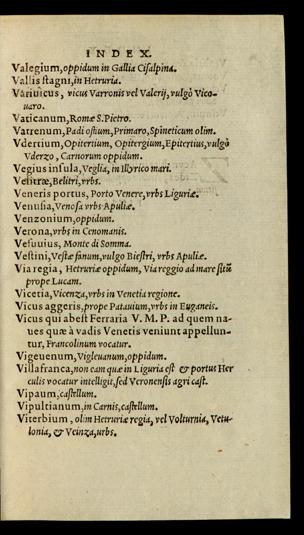 INDEX.
Valegium, oppidum in Gallia Cisalpina.
Vallis stagni, in Hetruria.
Variuicus, vicus Varronis vel Valerij, vulgò Vico-
uaro.
Vaticanum, Romæ S. Pietro.
Vatrenum, Padi ostium, Primaro, Spineticum olim.
Vdertium, Opitertium, Opitergium, Epitertius, vulgò
Vderzo, Carnorum oppidum.
Vegius insula, Veglia, in Illyrico mari.
Velitræ, Belitri, vrbs.
Veneris portus, Porto Venere, vrbs Liguriæ.
Venusia, Venosa vrbs Apuliæ.
Venzonium, oppidum.
Verona, vrbs in Cenomanis.
Vesuuius, Monte di Somma.
Vestini, Vestæ fanum, vulgo Biestri, vrbs Apuliæ.
Via regia, Hetruriæ oppidum, Via reggio ad mare sitū
prope Lucam.
Vicetia, Vicenza, vrbs in Venetia regione.
Vicus aggeris, prope Patauium, vrbs in Euganeis.
Vicus qui abest Ferraria V. M. P. ad quem na-
ues quæ à vadis Venetis veniunt appellun-
tur, Francolinum vocatur.
Vigeuenum, Vigleuanum, oppidum.
Villafranca, non eam quæ in Liguria est & portus Her
culis vocatur intelligit, sed Veronensis agri cast.
Vipaum, castellum.
Vipultianum, in Carnis, castellum.
Viterbium, olim Hetruriæ regia, vel Volturnia, Vetu-
lonia, & Veinza, vrbs.